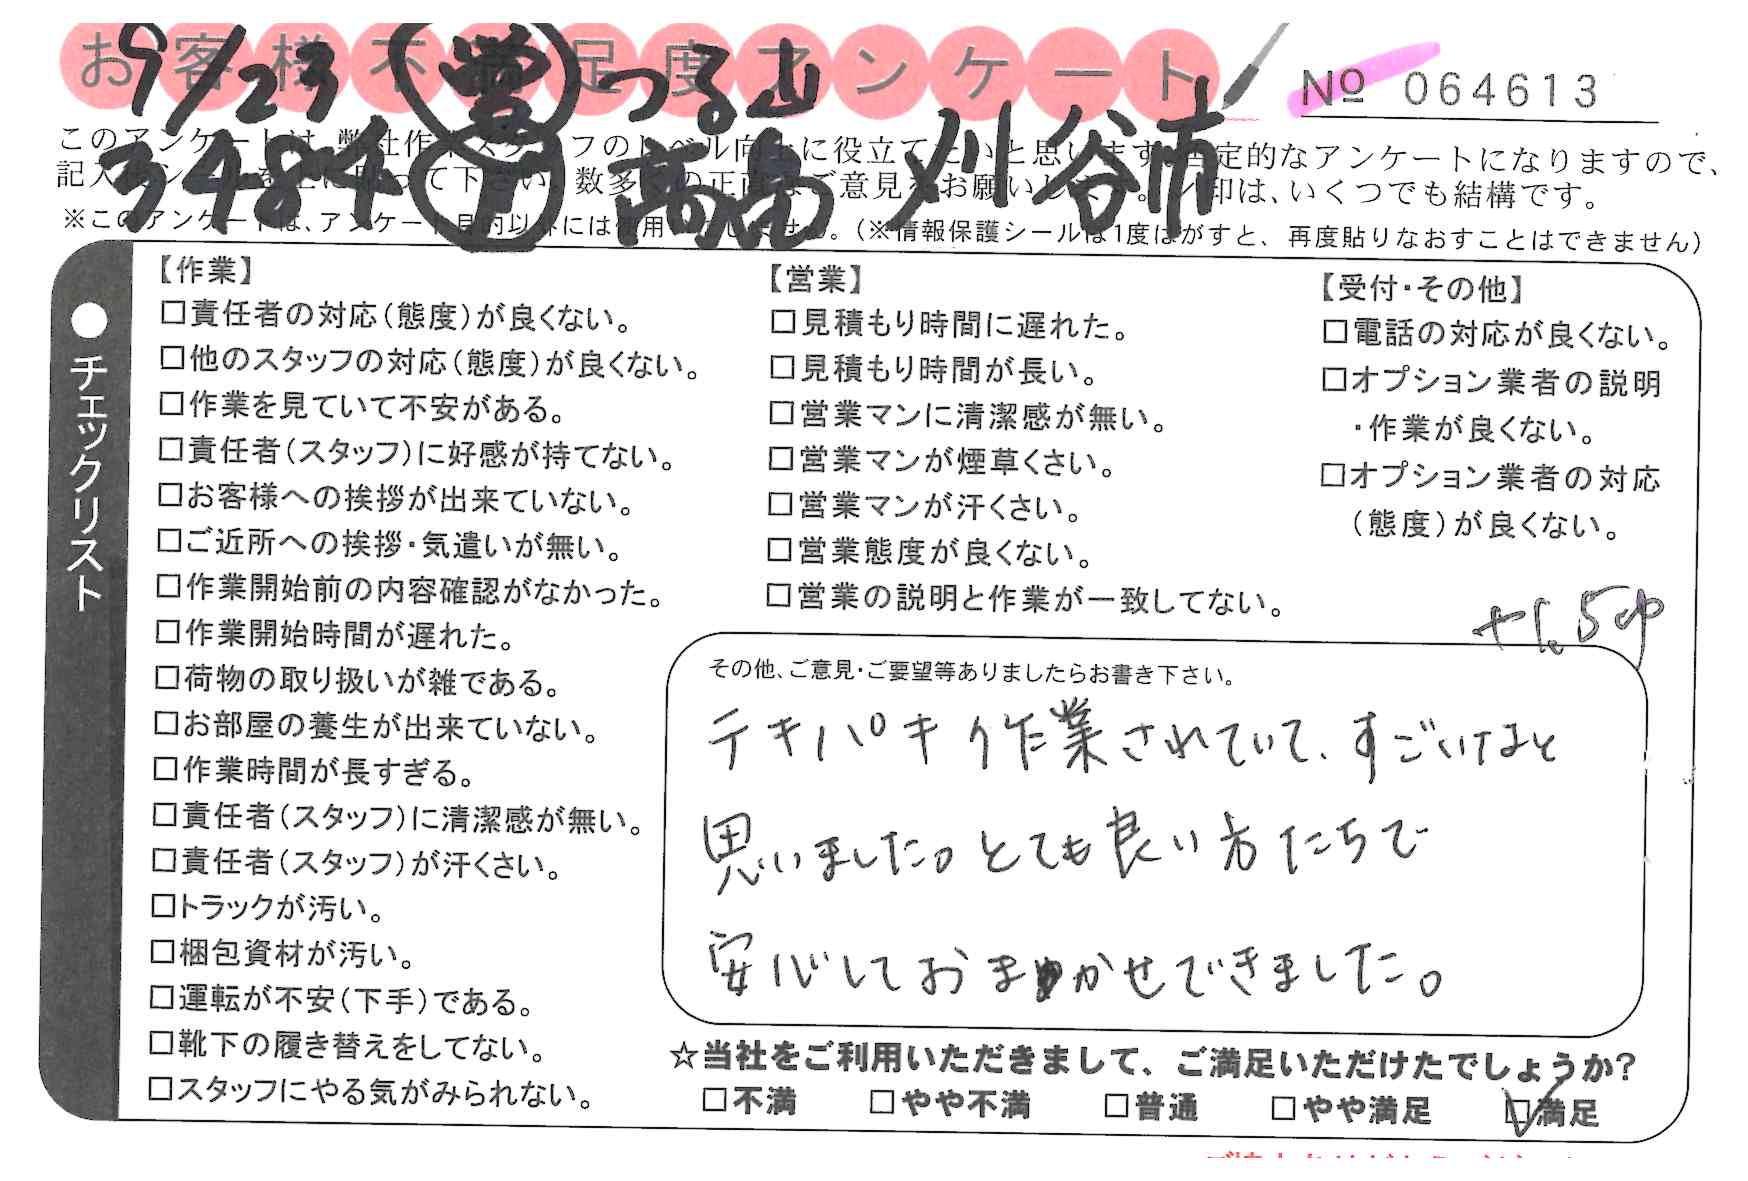 お客様不満足度アンケート
9/23 営 つる山
No 064613
3484 高島 刈谷市
※このアンケートは、アンケート目的以外には使用いたしません。(※情報保護シールは1度はがすと、再度貼りなおすことはできません)
●チェックリスト
【作業】
□責任者の対応(態度)が良くない。
□他のスタッフの対応(態度)が良くない。
□作業を見ていて不安がある。
□責任者(スタッフ)に好感が持てない。
□お客様への挨拶が出来ていない。
□ご近所への挨拶・気遣いが無い。
□作業開始前の内容確認がなかった。
□作業開始時間が遅れた。
□荷物の取り扱いが雑である。
□お部屋の養生が出来ていない。
□作業時間が長すぎる。
□責任者(スタッフ)に清潔感が無い。
□責任者(スタッフ)が汗くさい。
□トラックが汚い。
□梱包資材が汚い。
□運転が不安(下手)である。
□靴下の履き替えをしてない。
□スタッフにやる気がみられない。
【営業】
□見積もり時間に遅れた。
□見積もり時間が長い。
□営業マンに清潔感が無い。
□営業マンが煙草くさい。
□営業マンが汗くさい。
□営業態度が良くない。
□営業の説明と作業が一致してない。
【受付・その他】
□電話の対応が良くない。
□オプション業者の説明
・作業が良くない。
□オプション業者の対応
(態度)が良くない。
その他、ご意見・ご要望等ありましたらお書き下さい。
テキパキ作業されていて、すごいなと
思いました。とても良い方たちで
安心しておまかせできました。
☆当社をご利用いただきまして、ご満足いただけたでしょうか?
□不満 □やや不満 □普通 □やや満足 ☑満足